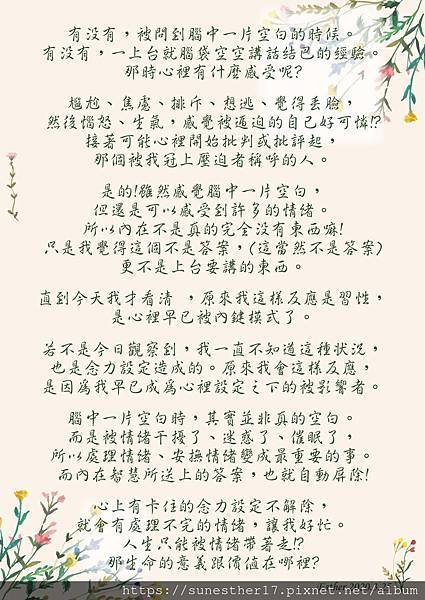 有沒有，被問到腦中一片空白的時候。
有沒有，一上台就腦袋空空講話結巴的經驗。
那時心裡有什麼感受呢?
尷尬、焦慮、排斥、想逃、覺得丟臉，
然後惱怒、生氣，感覺被逼迫的自己好可憐!?
接著可能心裡開始批判或批評起，
那個被我冠上壓迫者稱呼的人。
是的!雖然感覺腦中一片空白，
但還是可以感受到許多的情緒。
所以內在不是真的完全沒有東西嘛!
只是我覺得這個不是答案，(這當然不是答案)
更不是上台要講的東西。
直到今天我才看清 ，原來我這樣反應是習性，
是心裡早已被內鍵模式了。
若不是今日觀察到，我一直不知道這種狀況，
也是念力設定造成的。原來我會這樣反應，
是因為我早已成為心裡設定之下的被影響者。
腦中一片空白時，其實並非真的空白。
而是被情緒干擾了、迷惑了、催眠了，
所以處理情緒、安撫情緒變成最重要的事。
而內在智慧所送上的答案，也就自動屏除!
心上有卡住的念力設定不解除，
就會有處理不完的情緒，讓我好忙。
人生只能被情緒帶著走!?
那生命的意義跟價值在哪裡?
https://sunesther17.pixnet.net/album